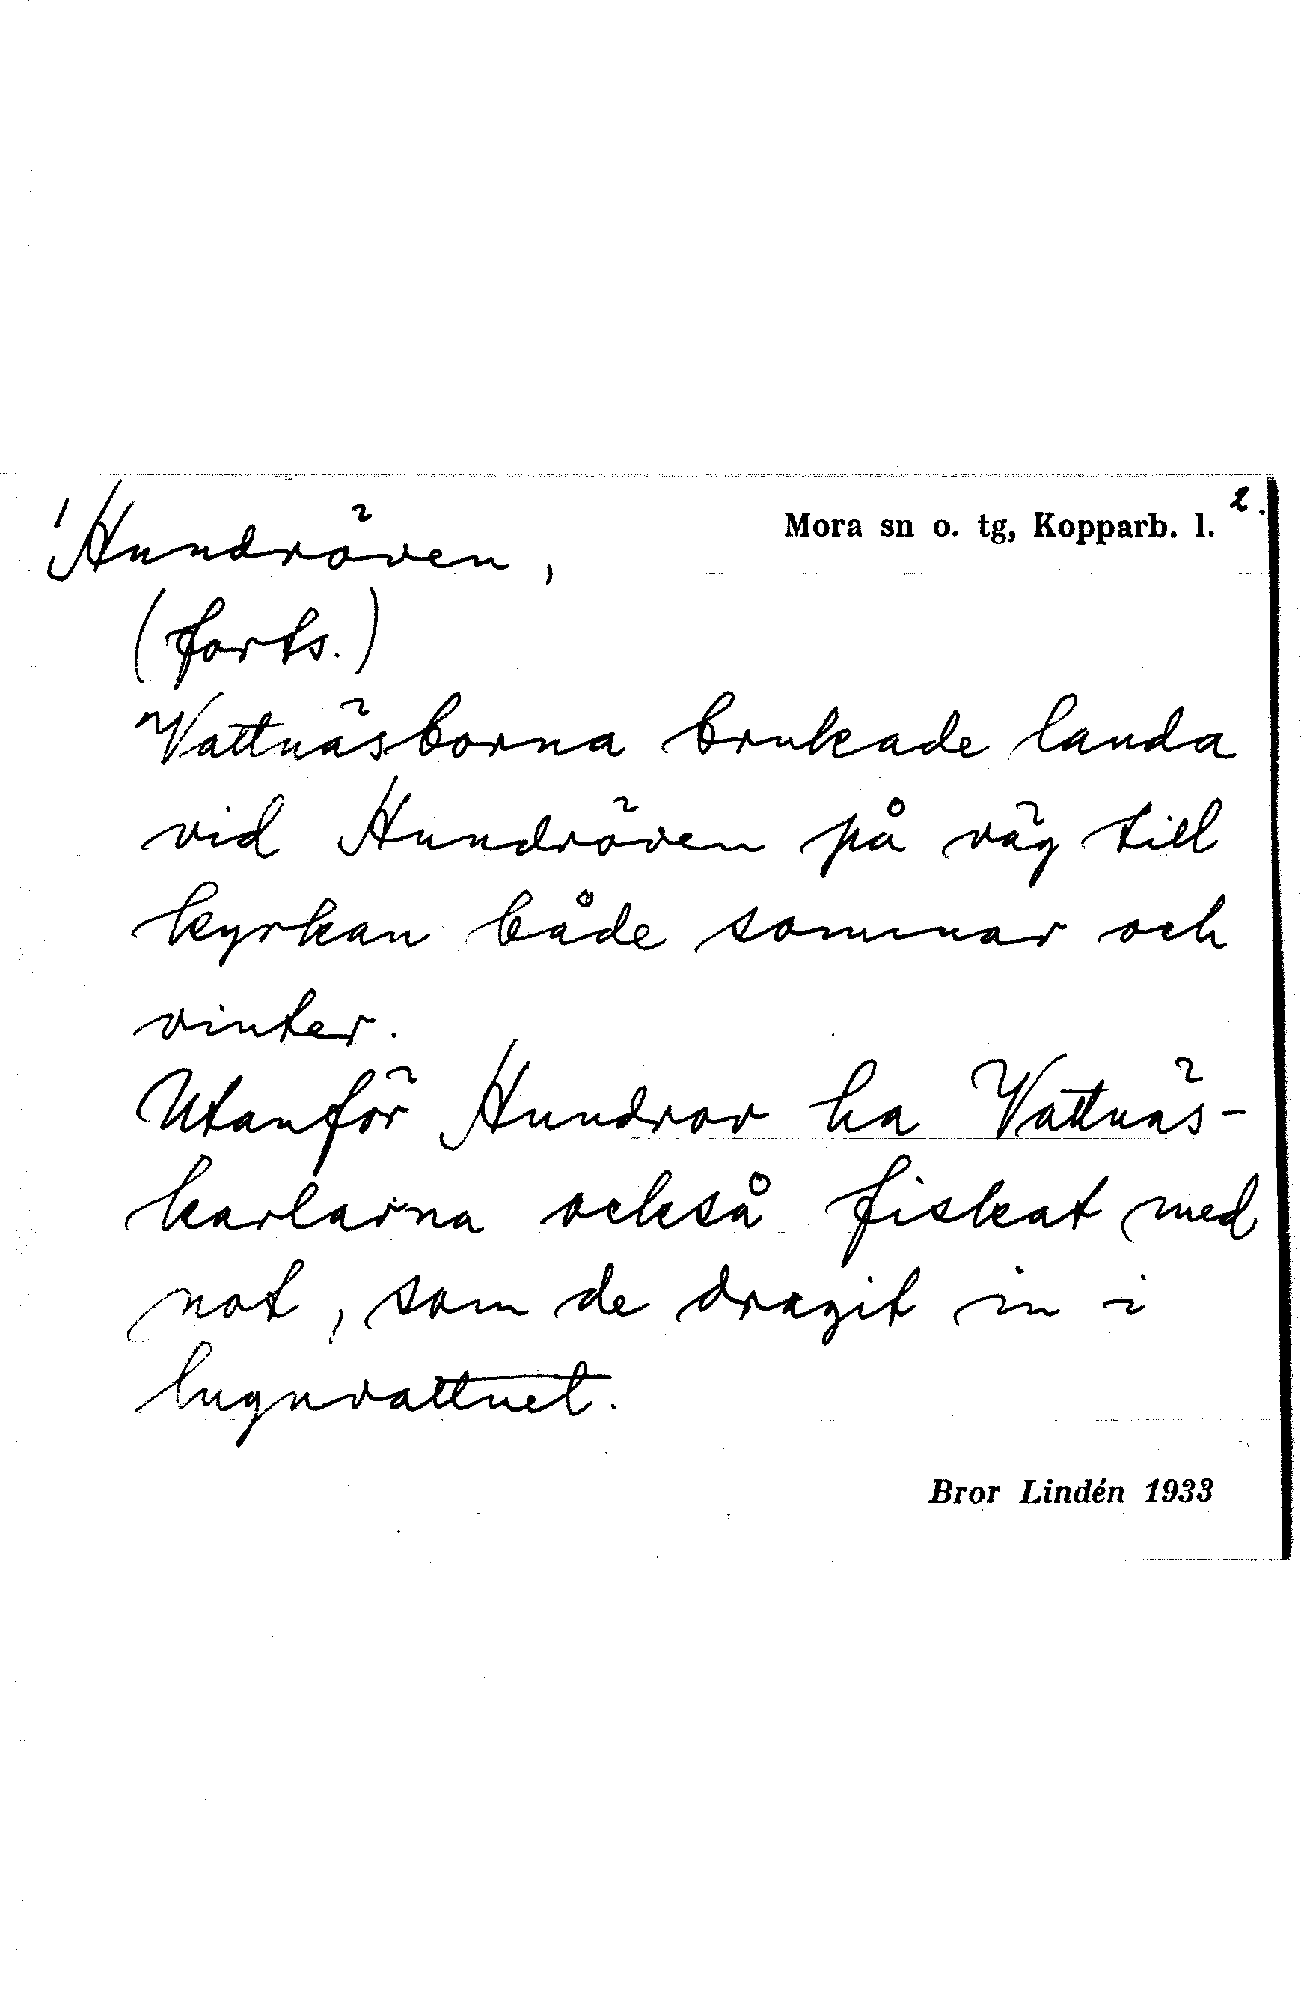 'Hundröven,
Mora sn o. tg, Kopparb. l. 2.
(forts.)
Vattnäsborna brukade landa
vid Hundröven på väg till
kyrkan både sommar och
vinter.
Utanför Hundrov ha Vattnäs-
karlarna också fiskat med
not, som de dragit in i
lugnvattnet.
Bror Lindén 1933